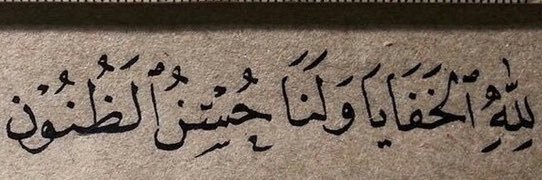 لِلّٰهِ ٱلْخَفَايَا وَلَنَا حُسْنُ ٱلظُّنُونِ